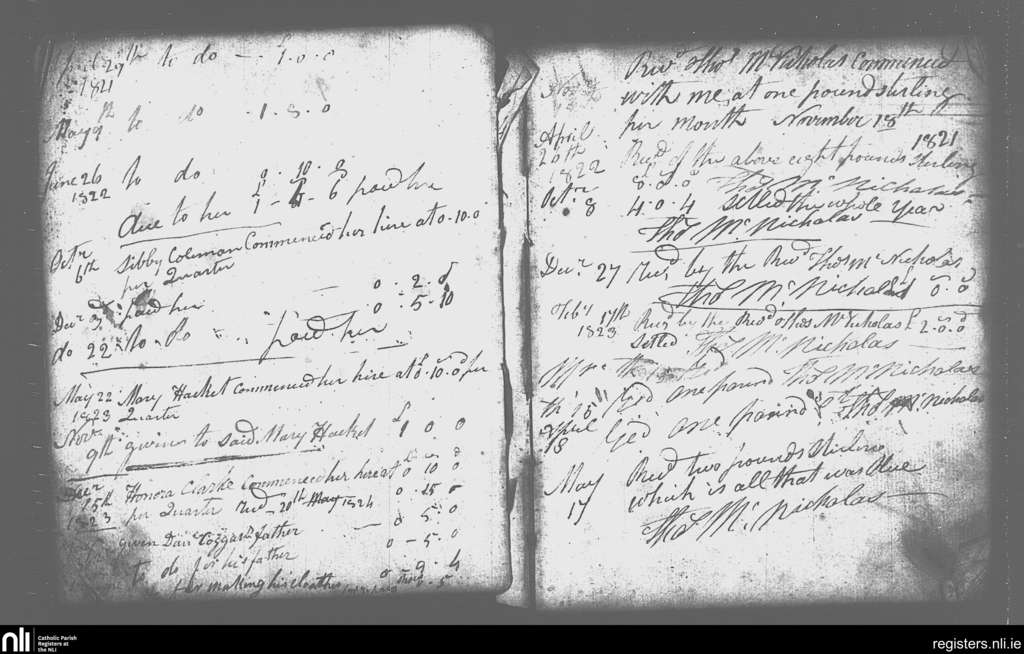 April 29th to do — £1.0.0
1821
May 9th to do 1.8.0
June 26 to do 0.10.0
1822
due to her £1-1-6 paid her
Octr 6th Sibby Coleman Commenced her hire at 0.10.0
per Quarter
Decr 3d paid her — 0.2.
do 22 to Do 0-5-10
paid her
May 22 Mary Hacket commenced her hire at 0.10.0 per
1823 Quarter
Novr 9th given to said Mary Hacket £1 0 0
Decr 15th Honora Clarke Commenced her hire at 0 10 0
1823 per Quarter Recd 20th May 1824 0.
given Dan Cozgars father — 0 5.0
to do for his father 0-5.0
for making his cloathes 0 9.4
Revd Thos Mc Nicholas Commenced
with me at one pound sterling
per month November 18th
1821
April 20th Recd of the above eight pounds Sterling
1822
8.0.0 Thos Mc Nicholas
Octr 8 4.0.4 Settled the whole year
Thos Mc Nicholas
Decr 27 Recd by the Revd Thos Mc Nicholas
Thos Mc Nicholas
Feby 17th Recd by the Revd Thos Mc Nicholas £2.0.0
1823
Settled Thos Mc Nicholas
th 15 one pound Thos Mc Nicholas
April 18 one pound Thos Mc Nicholas
May 17 Recd two pounds
which is all that was due
Thos Mc Nicholas
nli Catholic Parish
Registers at
the NLI
registers.nli.ie